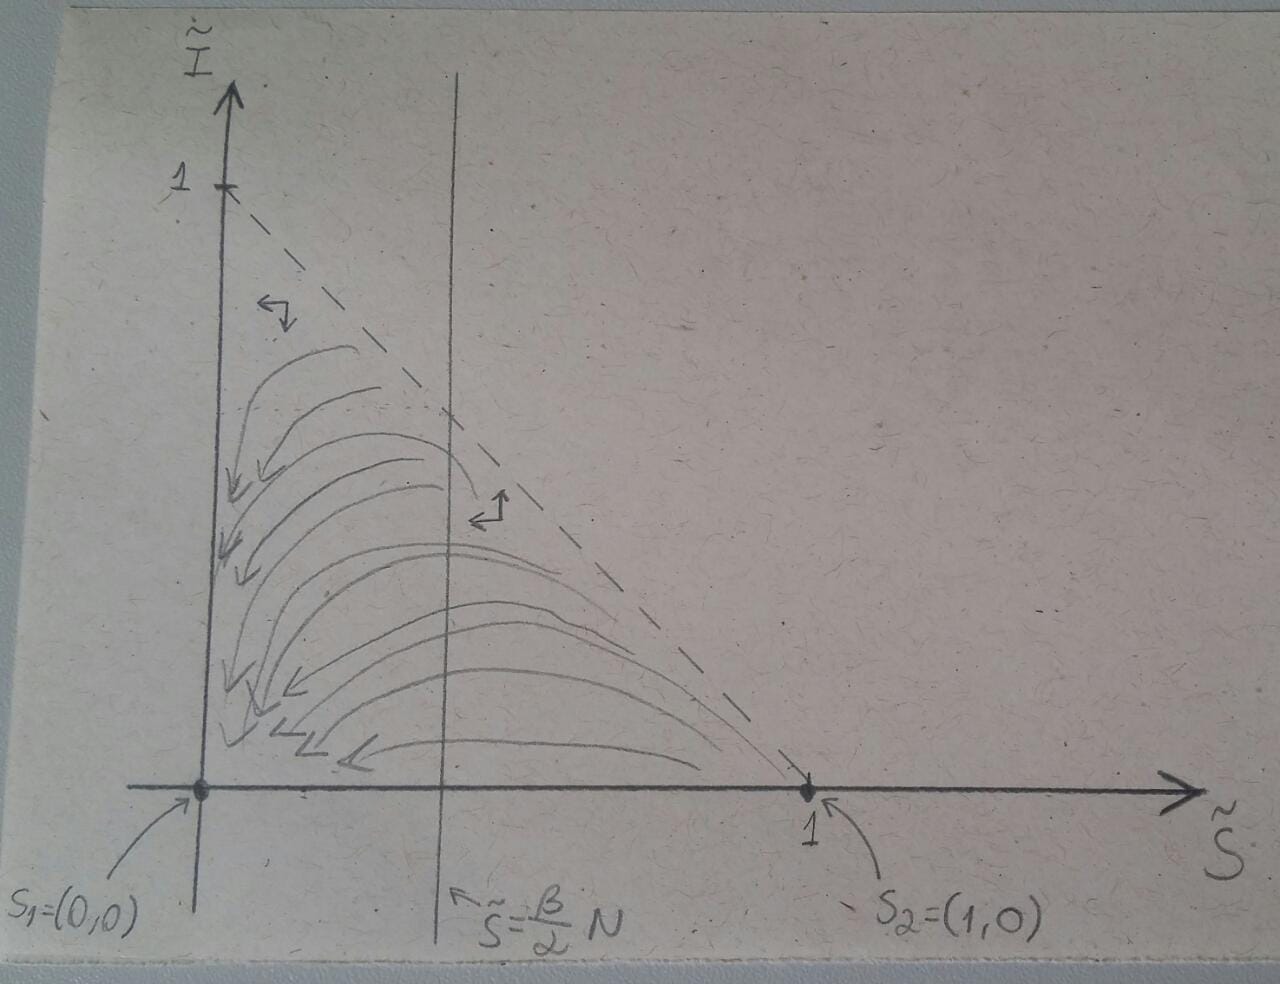 Ĩ
1
1
S̃
S₁=(0,0)
S̃=β/α N
S₂=(1,0)